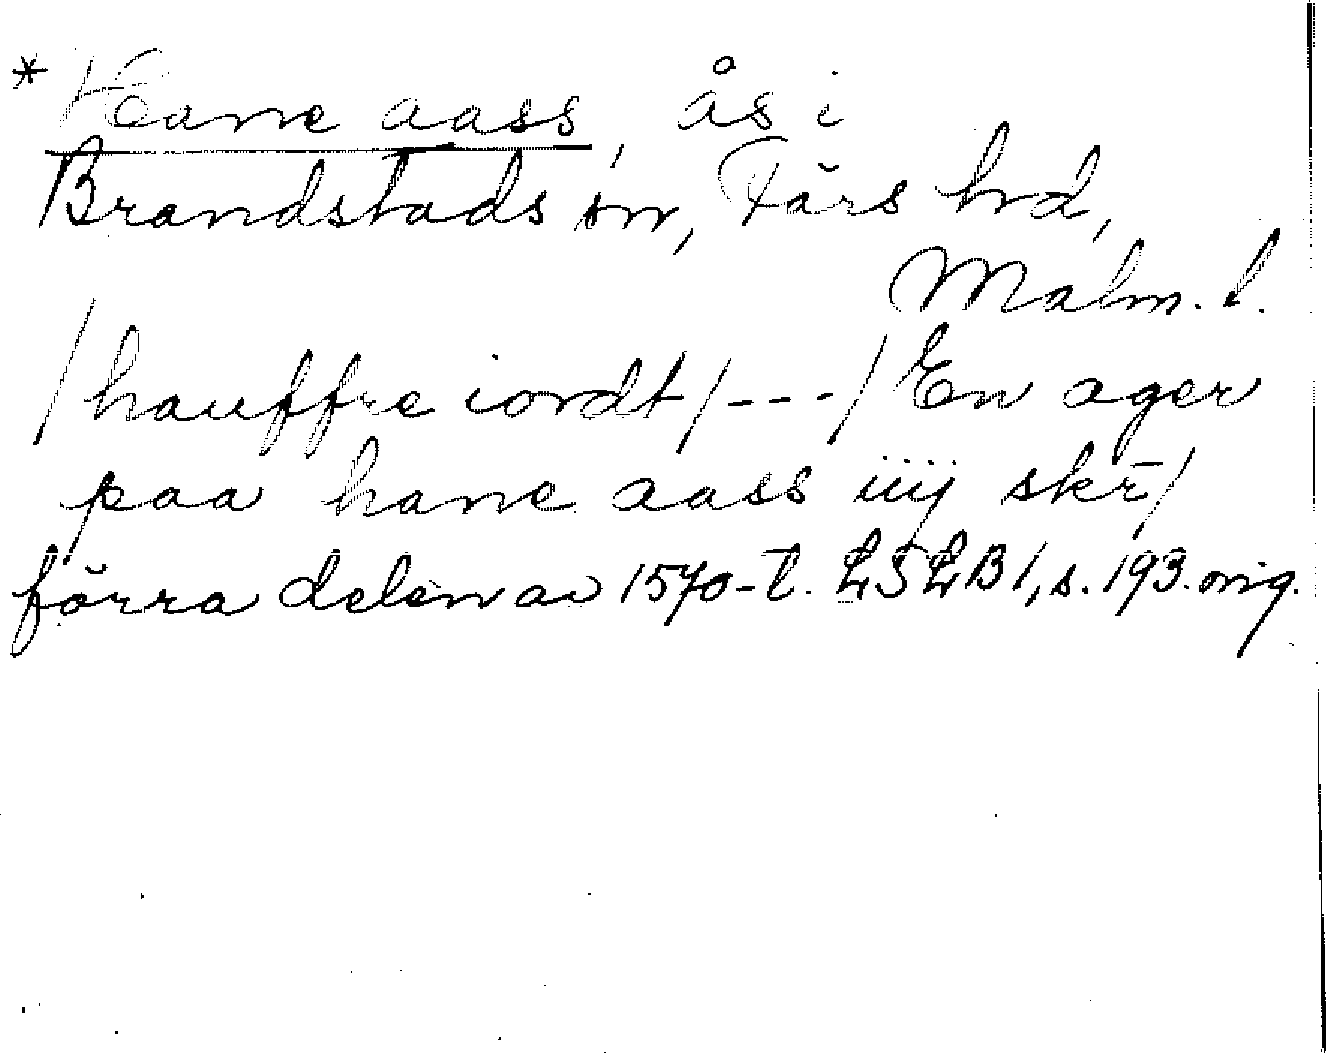 * Hane aass, ås i
Brandstads sn, Färs hd,
Malm. l.
/hauffre iordt/---/En ager
paa hane aass iiij skr̄/
förra delen av 1570-t. LSLB1, s. 193. orig.